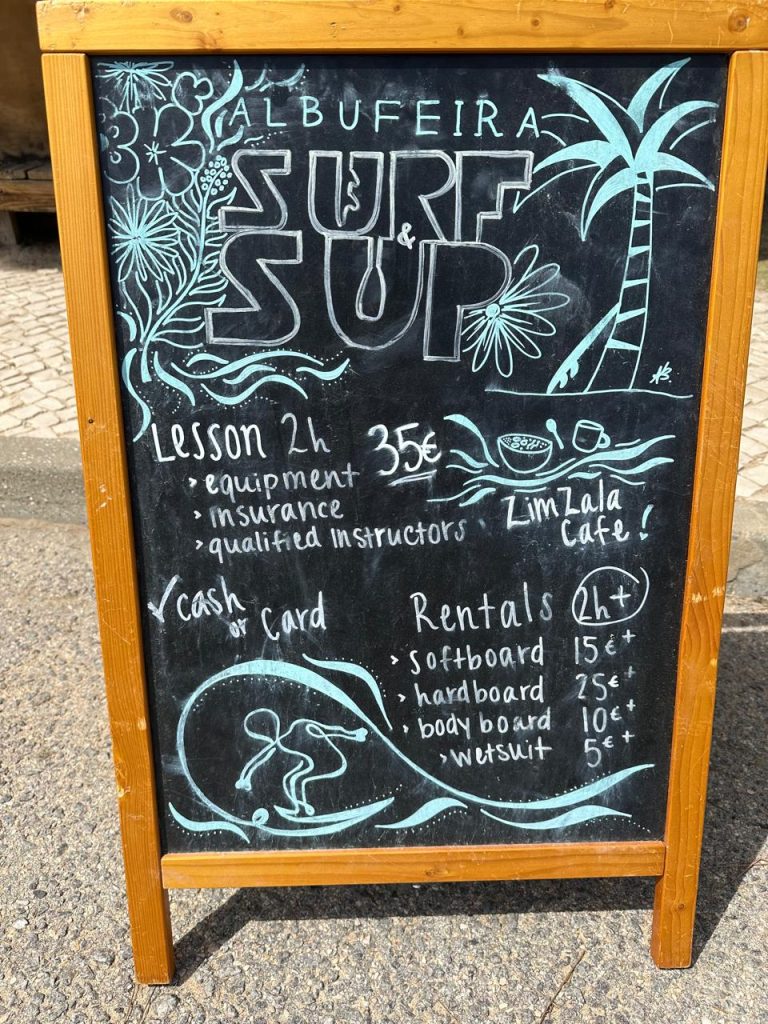 ALBUFEIRA
SURF
&
SUP
Lesson 2h 35€
> equipment
> insurance
> qualified instructors
ZimZala
Cafe!
✓cash
or card
Rentals 2h+
> softboard 15€+
> hardboard 25€+
> body board 10€+
> wetsuit 5€+